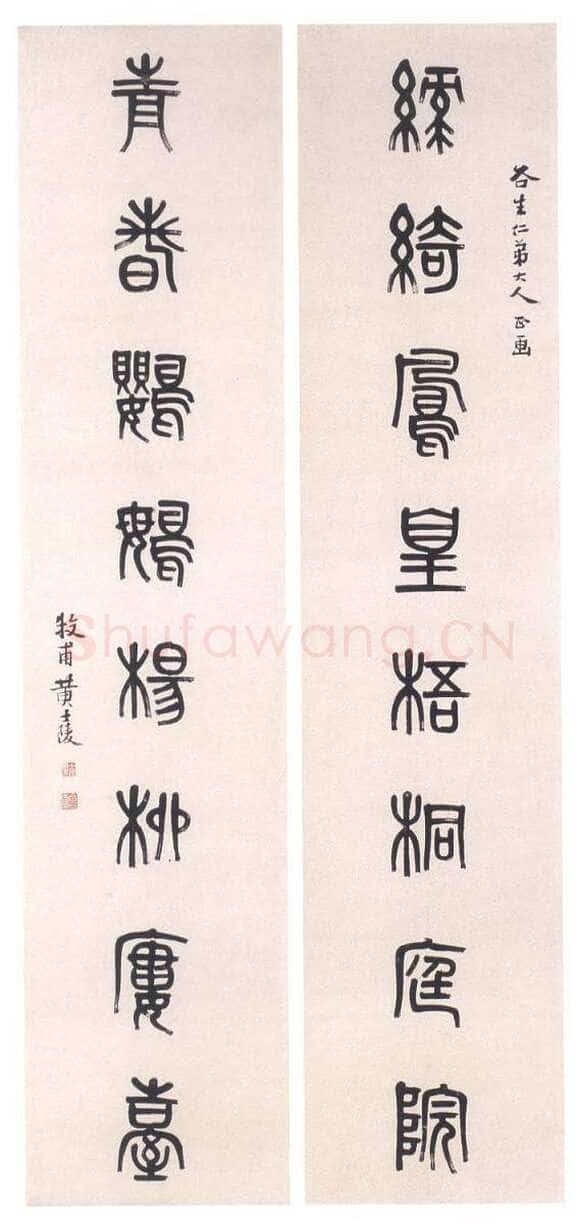 谷生仁弟大人正画
綠綺鳳皇梧桐庭院
青春鸚䳇楊柳廔臺
牧甫黃士陵
Shufawang.CN